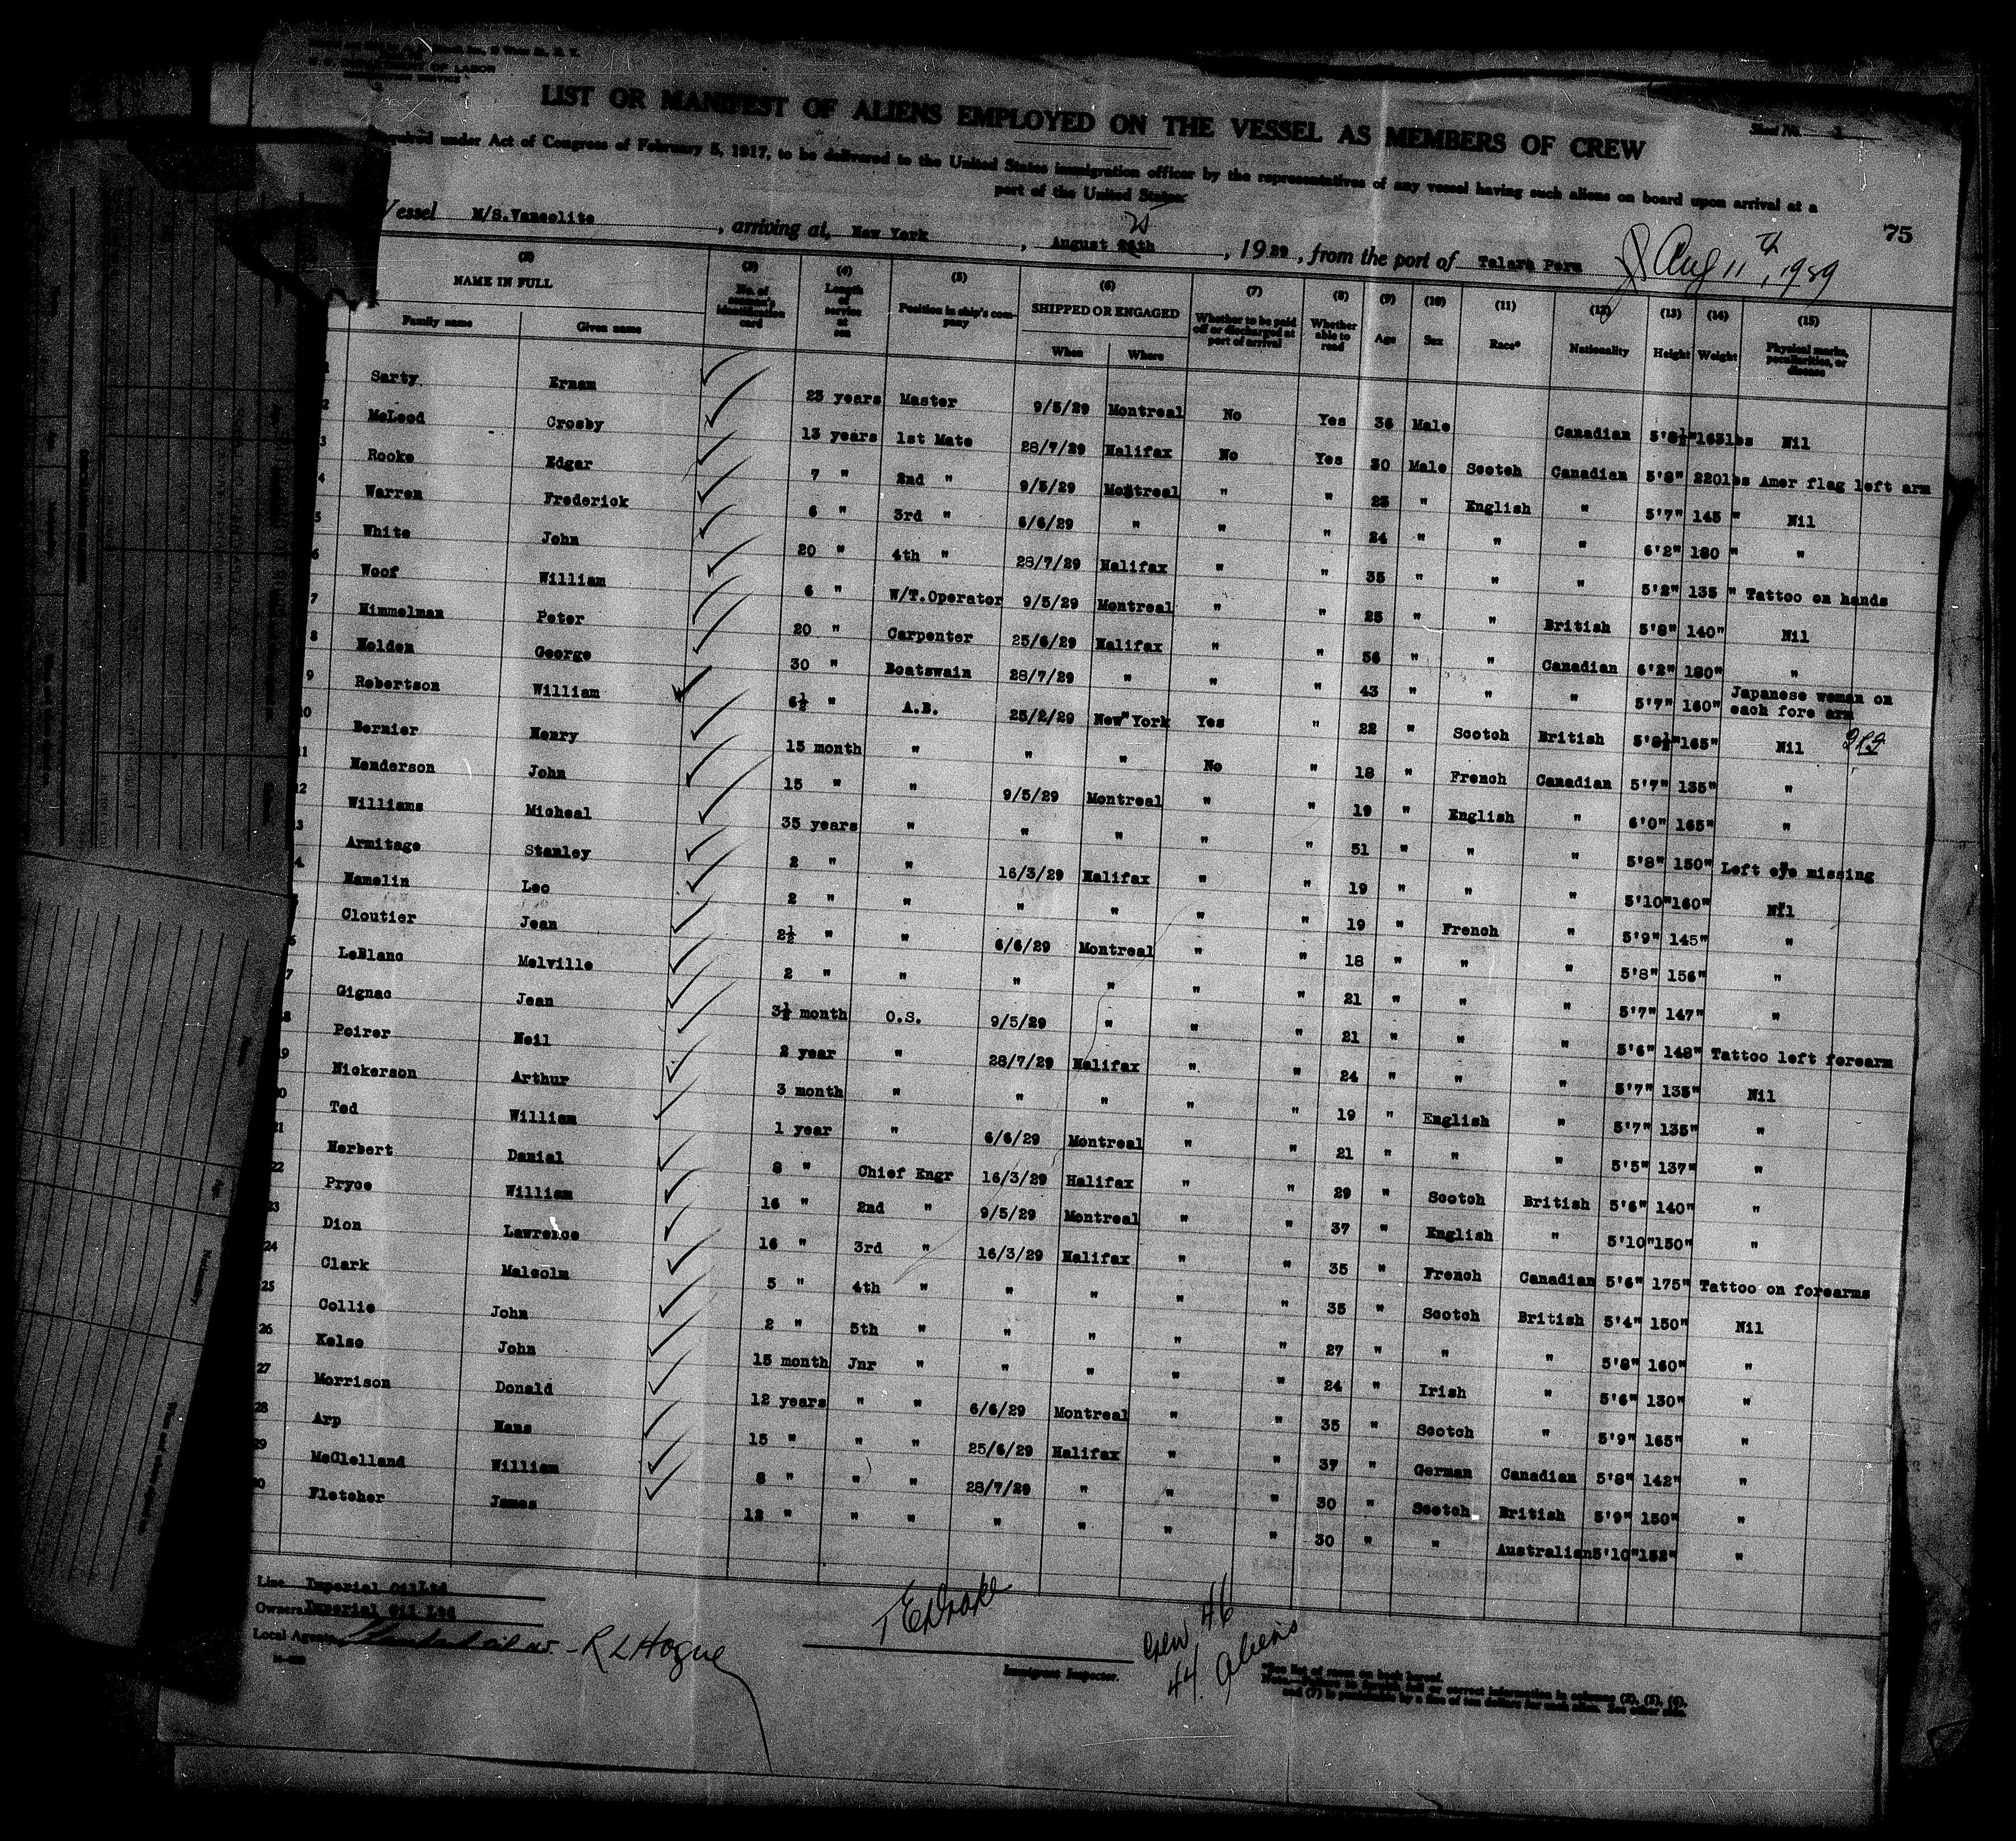 LIST OR MANIFEST OF ALIENS EMPLOYED ON THE VESSEL AS MEMBERS OF CREW
Sheet No. 1
Required under Act of Congress of February 5, 1917, to be delivered to the United States immigration officer by the representatives of any vessel having such aliens on board upon arrival at a
port of the United States
75
Vessel M/S.Vancolite, arriving at, New York, August 25, 1929, from the port of Talara Peru Aug 11th, 1929
(2) NAME IN FULL (3) No. of seaman's identification card (4) Length of service at sea (5) Position in ship's company (6) SHIPPED OR ENGAGED (7) Whether to be paid off or discharged at port of arrival (8) Whether able to read (9) Age (10) Sex (11) Race* (12) Nationality (13) Height (14) Weight (15) Physical marks, peculiarities, or disease
Family name Given name When Where
1 Sarty Ernam 23 years Master 9/5/29 Montreal No Yes 36 Male Canadian 5'8½" 163lbs Nil
2 McLeod Crosby 13 years 1st Mate 28/7/29 Halifax No Yes 30 Male Scotch Canadian 5'8" 220lbs Amer flag left arm
3 Rooke Edgar 7 " 2nd " 9/5/29 Montreal " " 23 " English " 5'7" 145 " Nil
4 Warren Frederick 6 " 3rd " 6/6/29 " " " 24 " " " 6'2" 180 " "
5 White John 20 " 4th " 28/7/29 Halifax " " 35 " " " 5'2" 135 " Tattoo on hands
6 Woof William 6 " W/T.Operator 9/5/29 Montreal " " 25 " " British 5'8" 140" Nil
7 Himmelman Peter 20 " Carpenter 25/6/29 Halifax " " 56 " " Canadian 6'2" 180" "
8 Holden George 30 " Boatswain 28/7/29 " " " 43 " " " 5'7" 160" Japanese woman on each fore arm
9 Robertson William 6½ " A.B. 25/2/29 New York Yes " 22 " Scotch British 5'8½" 165" Nil
10 Bernier Henry 15 month " " " No " 18 " French Canadian 5'7" 135" "
11 Henderson John 15 " " 9/5/29 Montreal " " 19 " English " 6'0" 165" "
12 Williams Micheal 35 years " " " " " 51 " " " 5'8" 150" Left eye missing
13 Armitage Stanley 2 " " 16/3/29 Halifax " " 19 " " " 5'10" 160" Nil
14 Hamelin Leo 2 " " " " " " 19 " French " 5'9" 145" "
Cloutier Jean 2½ " " 6/6/29 Montreal " " 18 " " " 5'8" 156" "
6 LeBlanc Melville 2 " " " " " " 21 " " " 5'7" 147" "
7 Gignac Jean 3½ month O.S. 9/5/29 " " " 21 " " " 5'6" 148" Tattoo left forearm
8 Poirer Neil 2 year " 28/7/29 Halifax " " 24 " " " 5'7" 135" Nil
19 Nickerson Arthur 3 month " " " " " 19 " English " 5'7" 135" "
20 Ted William 1 year " 6/6/29 Montreal " " 21 " " " 5'5" 137" "
21 Herbert Danial 8 " Chief Engr 16/3/29 Halifax " " 29 " Scotch British 5'6" 140" "
22 Pryce William 16 " 2nd " 9/5/29 Montreal " " 37 " English " 5'10" 150" "
23 Dion Lawrence 16 " 3rd " 16/3/29 Halifax " " 35 " French Canadian 5'6" 175" Tattoo on forearms
24 Clark Malcolm 5 " 4th " " " " " 35 " Scotch British 5'4" 150" Nil
25 Collie John 2 " 5th " " " " " 27 " " " 5'8" 160" "
26 Kelso John 15 month Jnr " " " " " 24 " Irish " 5'6" 130" "
27 Morrison Donald 12 years " " 6/6/29 Montreal " " 35 " Scotch " 5'9" 165" "
28 Arp Hans 15 " " " 25/6/29 Halifax " " 37 " German Canadian 5'8" 142" "
29 McClelland William 8 " " " 28/7/29 " " " 30 " Scotch British 5'9" 150" "
30 Fletcher James 12 " " " " " " " 30 " " Australian 5'10" 152" "
Line Imperial Oil Ltd
Owners Imperial Oil Ltd
Local Agents Standard oil - R L Hogue
T E Drake
Immigrant Inspector.
Crew 46
44. Aliens
*See list of races on back hereof.
Note.—Failure to furnish full or correct information in columns (2), (5), (6),
and (7) is punishable by a fine of ten dollars for each alien. See other side.